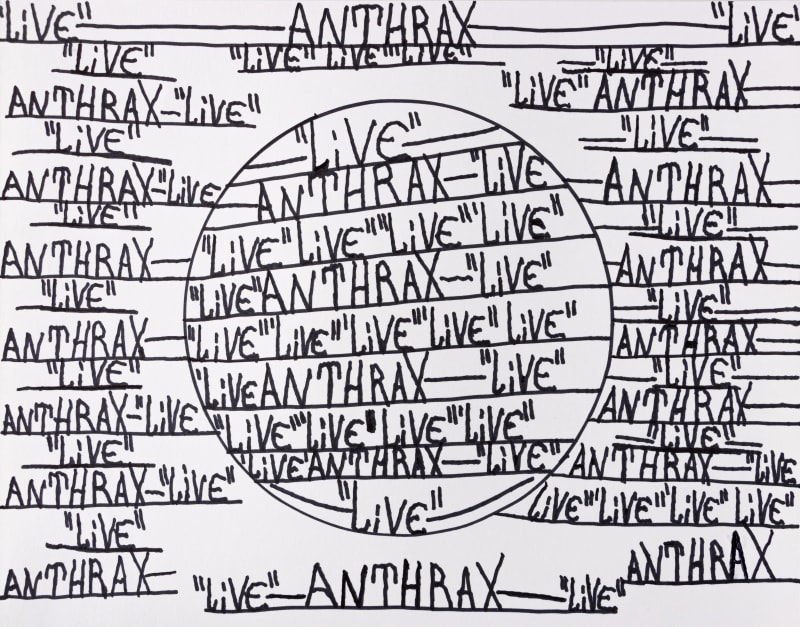 "LiVE" — ANTHRAX — "LiVE"
"LiVE"
ANTHRAX–"LiVE"
"LiVE"
ANTHRAX–"LiVE
"LiVE"
ANTHRAX—
"LiVE"
ANTHRAX—
"LiVE"
ANTHRAX–"LiVE
"LiVE"
ANTHRAX–"LiVE"
"LiVE"
ANTHRAX—
"LiVE" "LiVE" "LiVE"
"LiVE"
ANTHRAX—"LiVE
"LiVE" "LiVE" "LiVE" "LiVE"
"LiVE" ANTHRAX—"LiVE"
"LiVE" "LiVE" "LiVE" "LiVE" LiVE"
"LiVE ANTHRAX—"LiVE"
"LiVE" "LiVE" "LiVE" "LiVE"
LiVE ANTHRAX—"LiVE"
"LiVE"
"LiVE"
"LiVE" ANTHRAX—
"LiVE"
ANTHRAX—
"LiVE"
ANTHRAX—
"LiVE"
ANTHRAX—
"LiVE"
ANTHRAX—
"LiVE"
ANTHRAX—"LiVE
LiVE" "LiVE" "LiVE" LiVE"
ANTHRAX
"LiVE"—ANTHRAX—"LiVE"